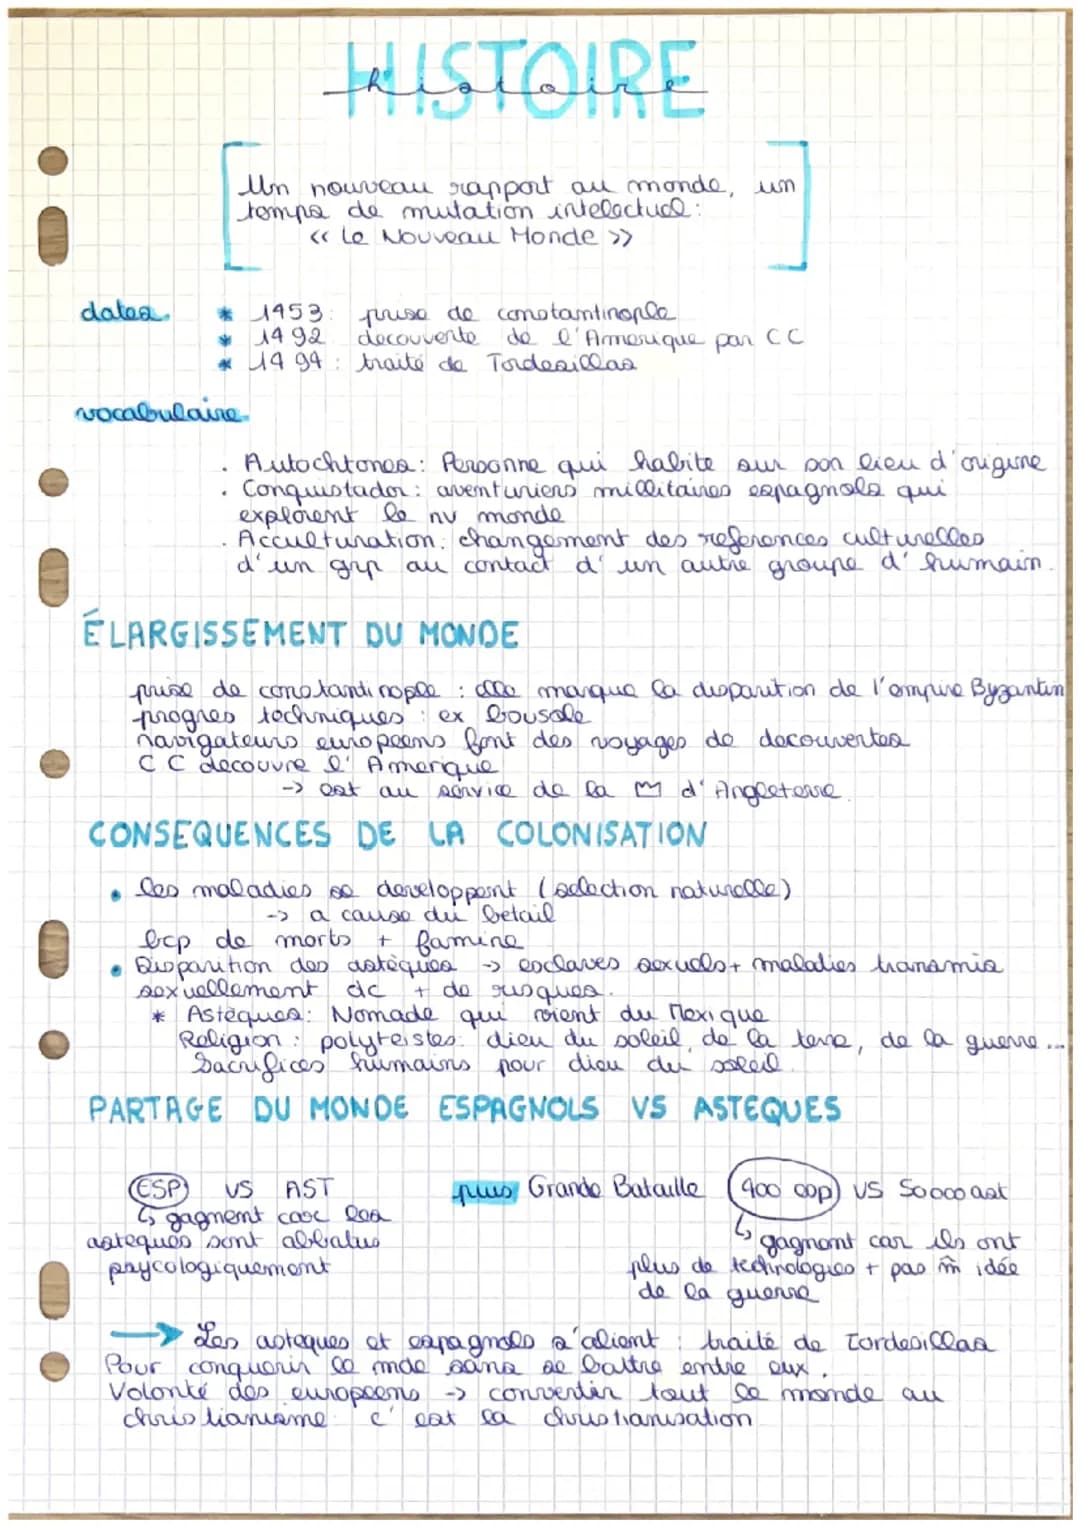 HISTOIRE
histoire
Un nouveau rapport au monde, un
temps de mutation intelectuel:
<< Le Nouveau Monde >>
dates.
* 1453: prise de constantinople
* 1492 decouverte de l'Amerique par CC
* 1494: traité de Tordesillas
vocabulaire.
. Autochtones: Personne qui habite sur son lieu d'origine
. Conquistador: aventuriers millitaires espagnols qui
explorent le nv monde
. Acculturation: changement des references culturelles
d'un grp au contact d'un autre groupe d'humain.
ÉLARGISSEMENT DU MONDE
prise de constantinople : elle marque la disparition de l'empire Byzantin
progres techniques : ex bousole
navigateurs europeens font des voyages de decouvertes
CC decouvre l'Amerique
-> est au service de la M d'Angleterre.
CONSEQUENCES DE LA COLONISATION
• les maladies se developpent (selection naturelle)
-> a cause du betail
bcp de morts + famine
• Disparition des astèques -> esclaves sexuels + maladies transmis
sexuellement dc + de risques.
* Astèques: Nomade qui vient du Mexique
Religion: polyteistes: dieu du soleil, de la terre, de la guerre...
Sacrifices humains pour dieu du soleil.
PARTAGE DU MONDE ESPAGNOLS VS ASTEQUES
ESP VS AST
↳ gagnent car les
asteques sont abbatus
psycologiquement
puis Grande Bataille 400 esp VS 50000 ast
↳ gagnent car ils ont
plus de technologies + pas m̂ idée
de la guerre
→ Les asteques et espagnols s'alient : traité de Tordesillas
Pour conquerir le mde sans se battre entre eux.
Volonté des europeens -> convertir tout le monde au
christianisme: c'est la christianisation